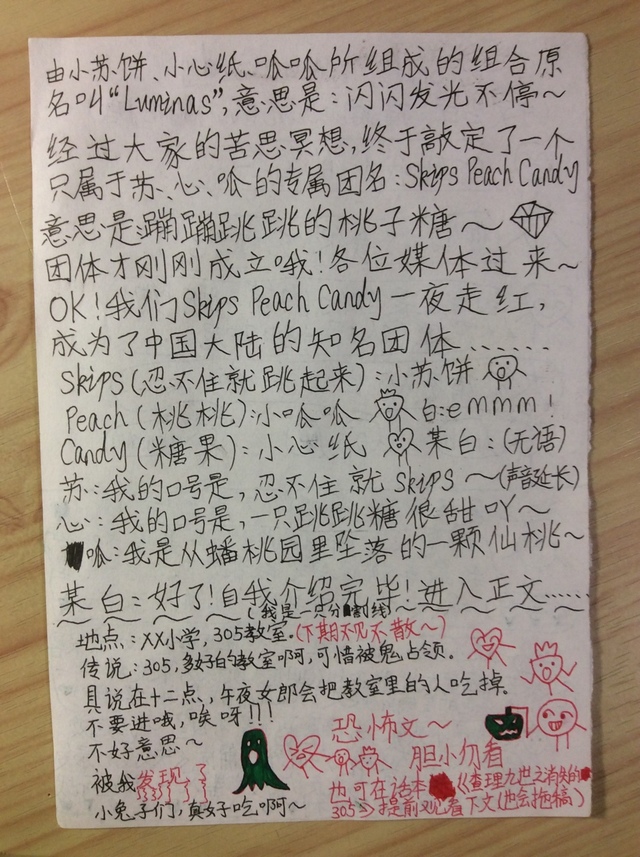 由小苏饼、小心纸、呱呱所组成的组合原
名叫“Luminas”,意思是:闪闪发光不停~
经过大家的苦思冥想,终于敲定了一个
只属于苏、心、呱的专属团名:Skips Peach Candy
意思是:蹦蹦跳跳的桃子糖~
团体才刚刚成立哦!各位媒体过来~
OK!我们Skips Peach Candy一夜走红,
成为了中国大陆的知名团体......
Skips(忍不住就跳起来):小苏饼
Peach(桃桃):小呱呱 白:emmm!
Candy(糖果):小心纸 某白:(无语)
苏:我的口号是,忍不住就skips~(声音延长)
心:我的口号是,一只跳跳糖很甜吖~
呱:我是从蟠桃园里坠落的一颗仙桃~
某白:好了!自我介绍完毕!进入正文......
(我是一只分割线)
地点:XX小学,305教室.(下期不见不散~)
传说:305,多好的教室啊,可惜被鬼占领.
具说在十二点、午夜女郎会把教室里的人吃掉.
不要进哦,唉呀!!!
不好意思~
恐怖文~
胆小勿看
被我发现了
小兔子们,真好吃啊~
也可在话本《查理九世之消失的
305》提前观看下文(也会拖稿)